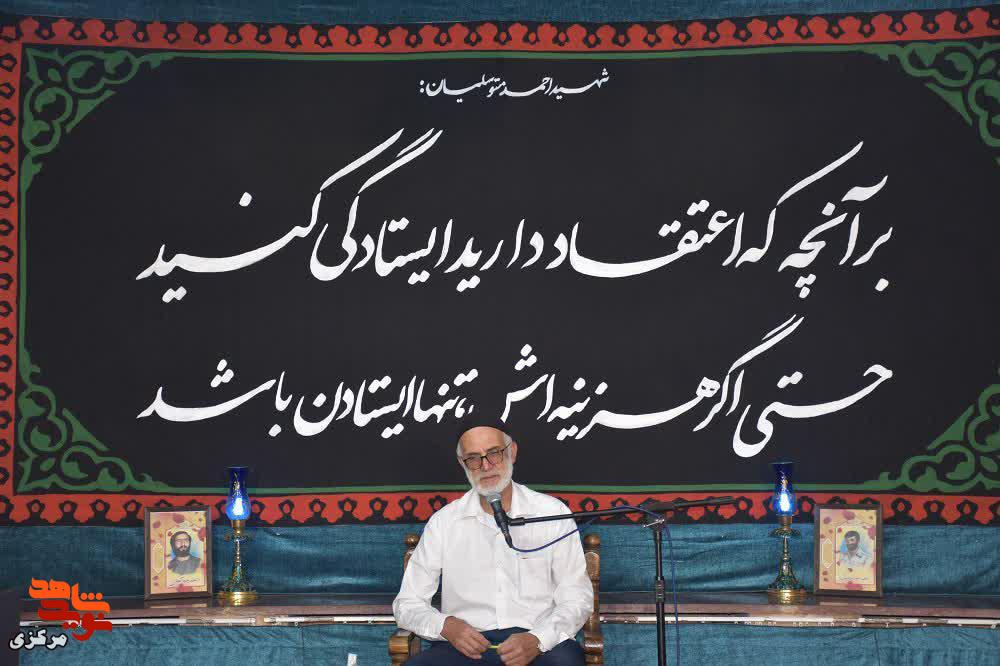 شهید احمد متوسلیان:
بر آنچه که اعتقاد دارید ایستادگی کنید
حتی اگر هزینه اش، تنها ایستادن باشد
نوید شاهد
مرکزی